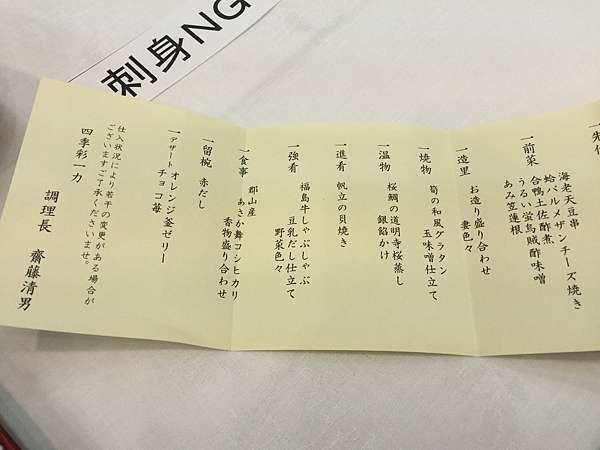 刺身NG
一先付
一前菜
海老天豆串
蛤パルメザンチーズ焼き
合鴨土佐酢煮
うるい蛍烏賊酢味噌
あみ笠蓮根
一造里
お造り盛り合わせ
妻色々
一焼物
筍の和風グラタン
玉味噌仕立て
一温物
桜鯛の道明寺桜蒸し
銀餡かけ
一進肴 帆立の貝焼き
一強肴
福島牛しゃぶしゃぶ
豆乳だし仕立て
野菜色々
一食事
郡山産
あさか舞コシヒカリ
香物盛り合わせ
一留椀 赤だし
一デザート オレンジ釜ゼリー
チョコ苺
仕入状況により若干の変更がある場合が
ございますご了承くださいませ。
四季彩一力
調理長 齋藤清男